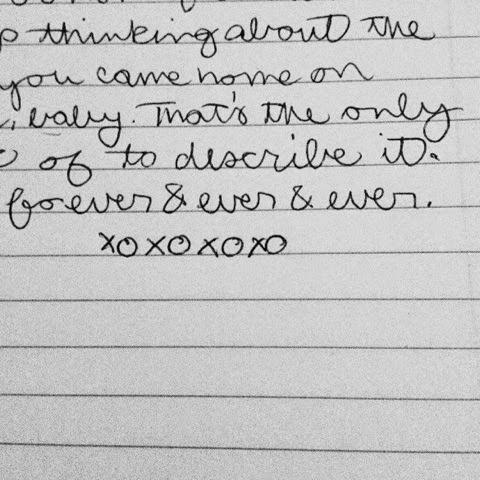 thinking about the
you came home on
baby. That's the only
of to describe it.
forever & ever & ever.
xoxoxoxo